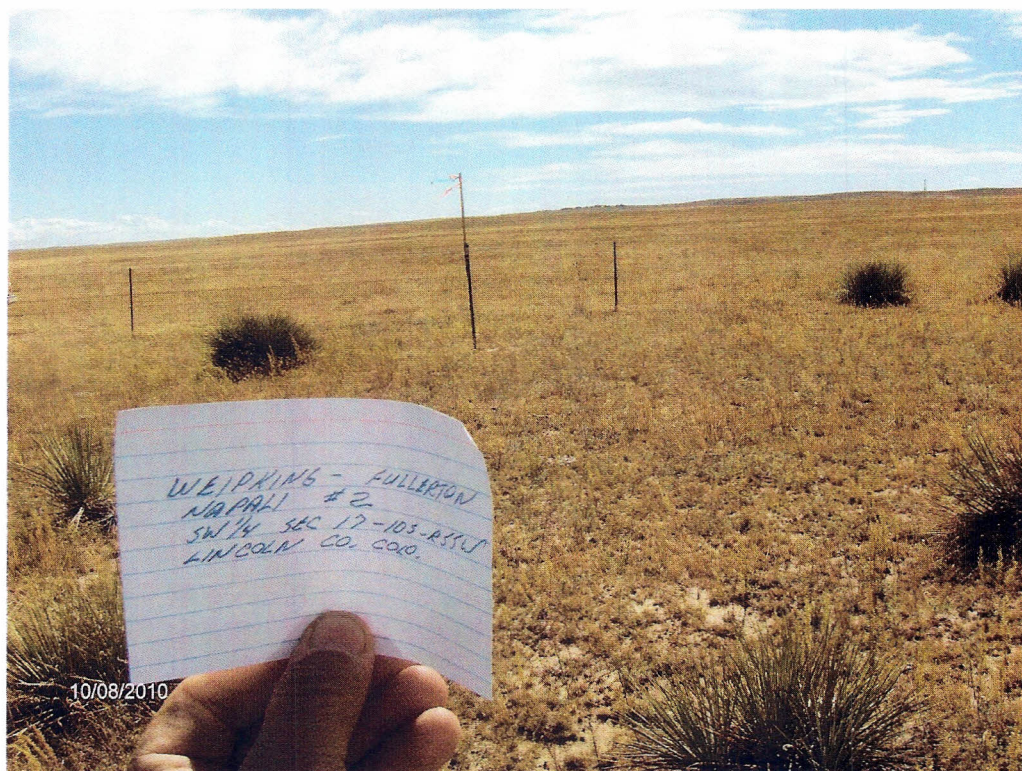 WEIPKING - FULLERTON
NAPALI #2
SW 1/4 SEC 17-10S-R55W
LINCOLN CO. COLO.
10/08/2010